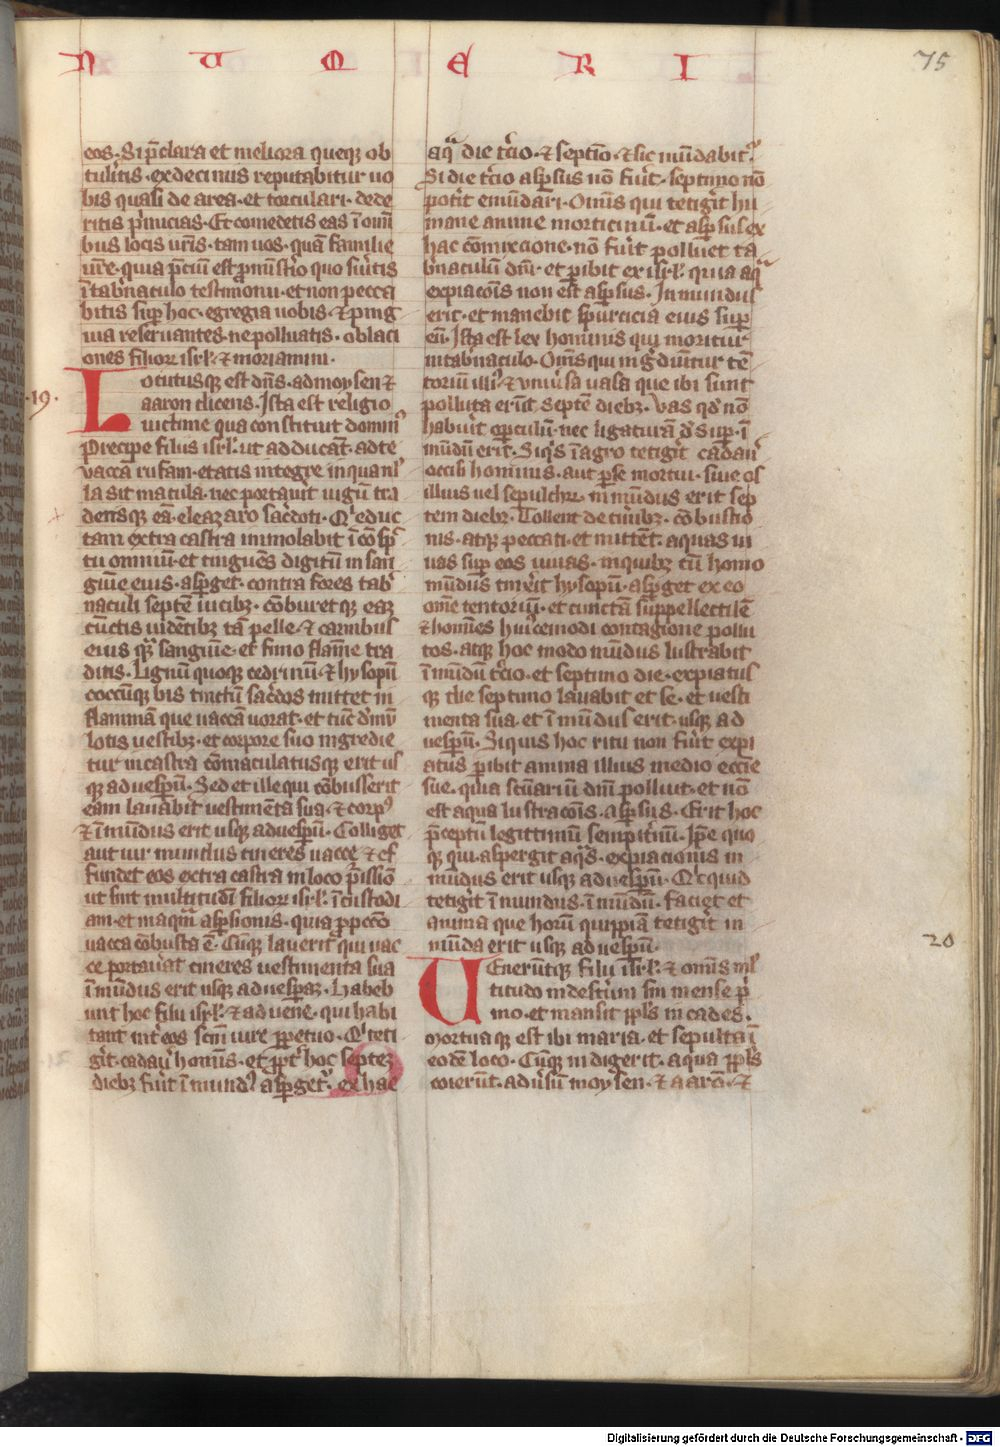 N U M E R I
75
eos. Si p̄clara et meliora queqꝫ ob
tulitis. ex decimis reputabitur uo
bis quasi de area. et torculari. dede
ritis p̄micias. Et comedetis eas ī om̄i
bus locis ur̄is. tam uos. quā familie
ur̄e. quia p̄ciū est pro ministerio quo suitis
ī tab̄naculo testimonii. et non pecca
bitis sup̱ hoc. egregia uobis. ⁊ ping
uia reseruantes. ne polluatis. oblaci
ones filioꝝ isr̄l. ⁊ moriamini.
19.
Locutusqꝫ est dn̄s. ad moysen ⁊
aaron dicens. Ista est religio
uictime qua constituit domin᷒
Precipe filiis isr̄l. ut adducāt. ad te
uaccā rufam. etatis integre in qua nl̄
la sit macula. nec portauit iugū tra
detisqꝫ eā. eleazaro sac̄doti. Qͥ educ
tam extra castra immolabit ī cōsp̄c
tu omniū. et tingnēs digitū in san
guīe eius. asp̱get. contra fores tab̄
naculi septē uicibꝫ. cōburetqꝫ eaꝫ
cūctis uidētibꝫ tā pelle. ⁊ carnibus
eius qͣꝫ sanguīe. et fimo flāme tra
ditis. Lignū quoqꝫ cedrinū. ⁊ hysopū
coccūqꝫ bis tinctū sac̄dos mittet in
flammā que uaccā uorat. et tūc demū
lotis uestibꝫ. et corpore suo ingredie
tur in castra cōmaculatusqꝫ erit us
qꝫ ad uesp̱ū. Sed et ille qui cōbusserit
eam lauabit uestimēta sua. ⁊ corp᷒
⁊ īmūdus erit usqꝫ ad uesp̱ū. Colliget
aut uir mundus cineres uacce. ⁊ ef
fundet eos extra castra in loco p̄issiō
ut sint multitudī filioꝝ isr̄l. ī custodi
am. et ī aquā asp̱sionis. quia p̱ pctō
uacca cōbusta ē. Cūqꝫ lauerit qui uac
ce portauāt cineres uestimenta sua
īmūdus erit usqꝫ ad uesp̱aꝫ. Habeb
unt hoc filii isr̄l. ⁊ aduene. qui habi
tant int̄ eos scm̄ iure p̱petuo. Qͥ teti
gīt. cadau̓ hoīnis. et p̱pt̄ hoc septeꝫ
diebꝫ fūit īmund᷒ asp̱get᷑. ex hac
aqͣ die t̄cio. ⁊ septīo. ⁊ sic mūdabit᷑.
Si die t̄cio asp̱sus nō fūit. septimo nō
potīt emūdari. Om̄is qui tetigīt hu
mane anime morticinū. et asp̱sus ex
hac cōmixcione. nō fūit polluet ta
b̄naculū dn̄i. et p̱ibit ex isr̄l. quia aqͣ
expiacōis non est asp̱sus. Inmundus
erit. et manebit spurcicia eius sup̱
eū. Ista est lex hominis qui moritur
in tab̄naculo. Om̄is qui ingdiūtur tē
toriū illi᷒. ⁊ uniūsa uasa que ibi sunt
polluta erūt septē diebꝫ. Vas qd̓ nō
habūit op̱culū. nec ligaturā d̓sup̱. ī
mūdū erit. Siqͥs ī agro tetigīt cadau̓
occisi hominis. aut p̱ se mortui. siue os
illius uel sepulchrū. inmūdus erit sep
tem diebꝫ. Tollent de cīnibꝫ. cōbustio
nis. atqꝫ peccati. et mittēt. aquas ui
uas sup̱ eos uiuas. in quibꝫ cū homo
mūdus tinxīt hysopū. asp̱get ex eo
om̄e tentoriū. et cunctā suppellectilē
⁊ homīes huiꝰcemodi contagione pollu
tos. atqꝫ hoc modo mūdus lustrabit
īmūdū t̄cio. et septimo die. expiatus
qꝫ die septimo lauabit et se. et uesti
menta sua. et īmūdus erit. usqꝫ ad
uesp̱ū. Siquis hoc ritu non fūit expi
atus p̱ibit anima illius medio ecc̄ie
sue. quia sc̄uariū dn̄i polluit. et nō
est aqua lustracōis. asp̱sus. Erit hoc
p̄ceptū legittimū sempit̄nū. Ip̄e quo
qꝫ qui aspergit aqͣs. expiacionis in
mūdus erit usqꝫ ad uesp̱ū. Qͥcquid
tetigīt īmundus. īmūdū. faciet et
anima que horū quippiā tetigīt in
mūda erit usqꝫ ad uesp̱ū.
20
Uenerūtqꝫ filii isr̄l. ⁊ om̄is ml̄
titudo in desertum sin mense p̄
mo. et mansit ppl̄s in cades.
Mortuaqꝫ est ibi maria. et sepulta ī
eodē loco. Cūqꝫ indigerīt. aqua ppl̄s
coierūt. adu̓sū moysen. ⁊ aarō. ⁊
Digitalisierung gefördert durch die Deutsche Forschungsgemeinschaft - DFG